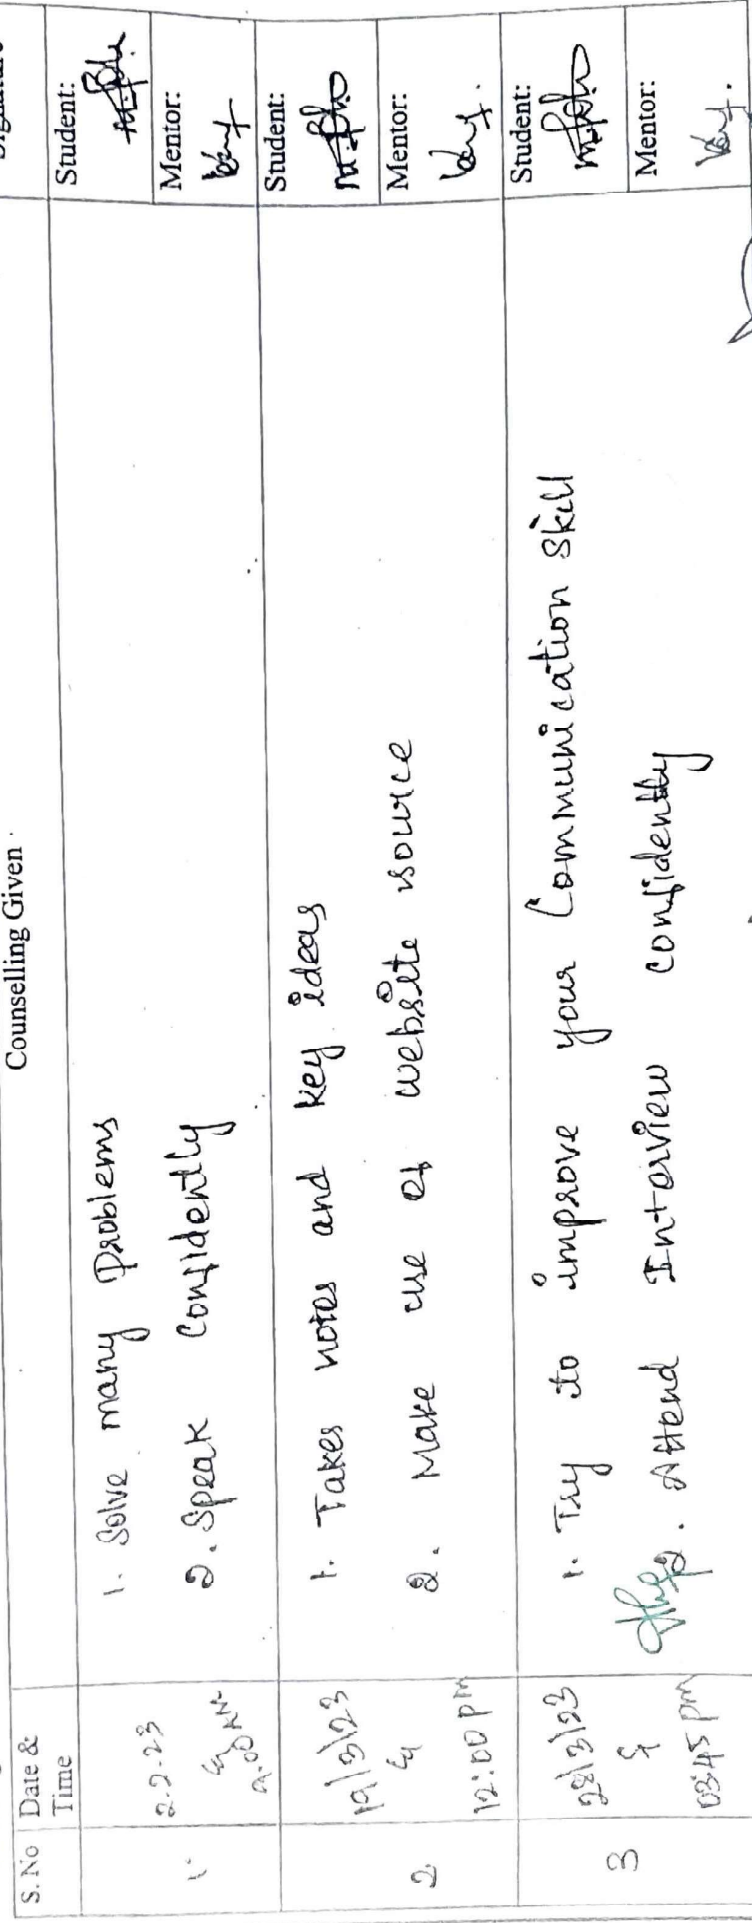 S. No
Date &
Time
Counselling Given
Signature
1
2-2-23
&
1. Solve many Problems
2. Speak Confidently
Student:
Mentor:
2
19/3/23
&
12:00 pm
1. Takes notes and key ideas
2. Make use of website source
Student:
Mentor:
3
28/3/23
&
03:45 pm
1. Try to improve your Communication Skill
2. Attend Interview confidently
Student:
Mentor: